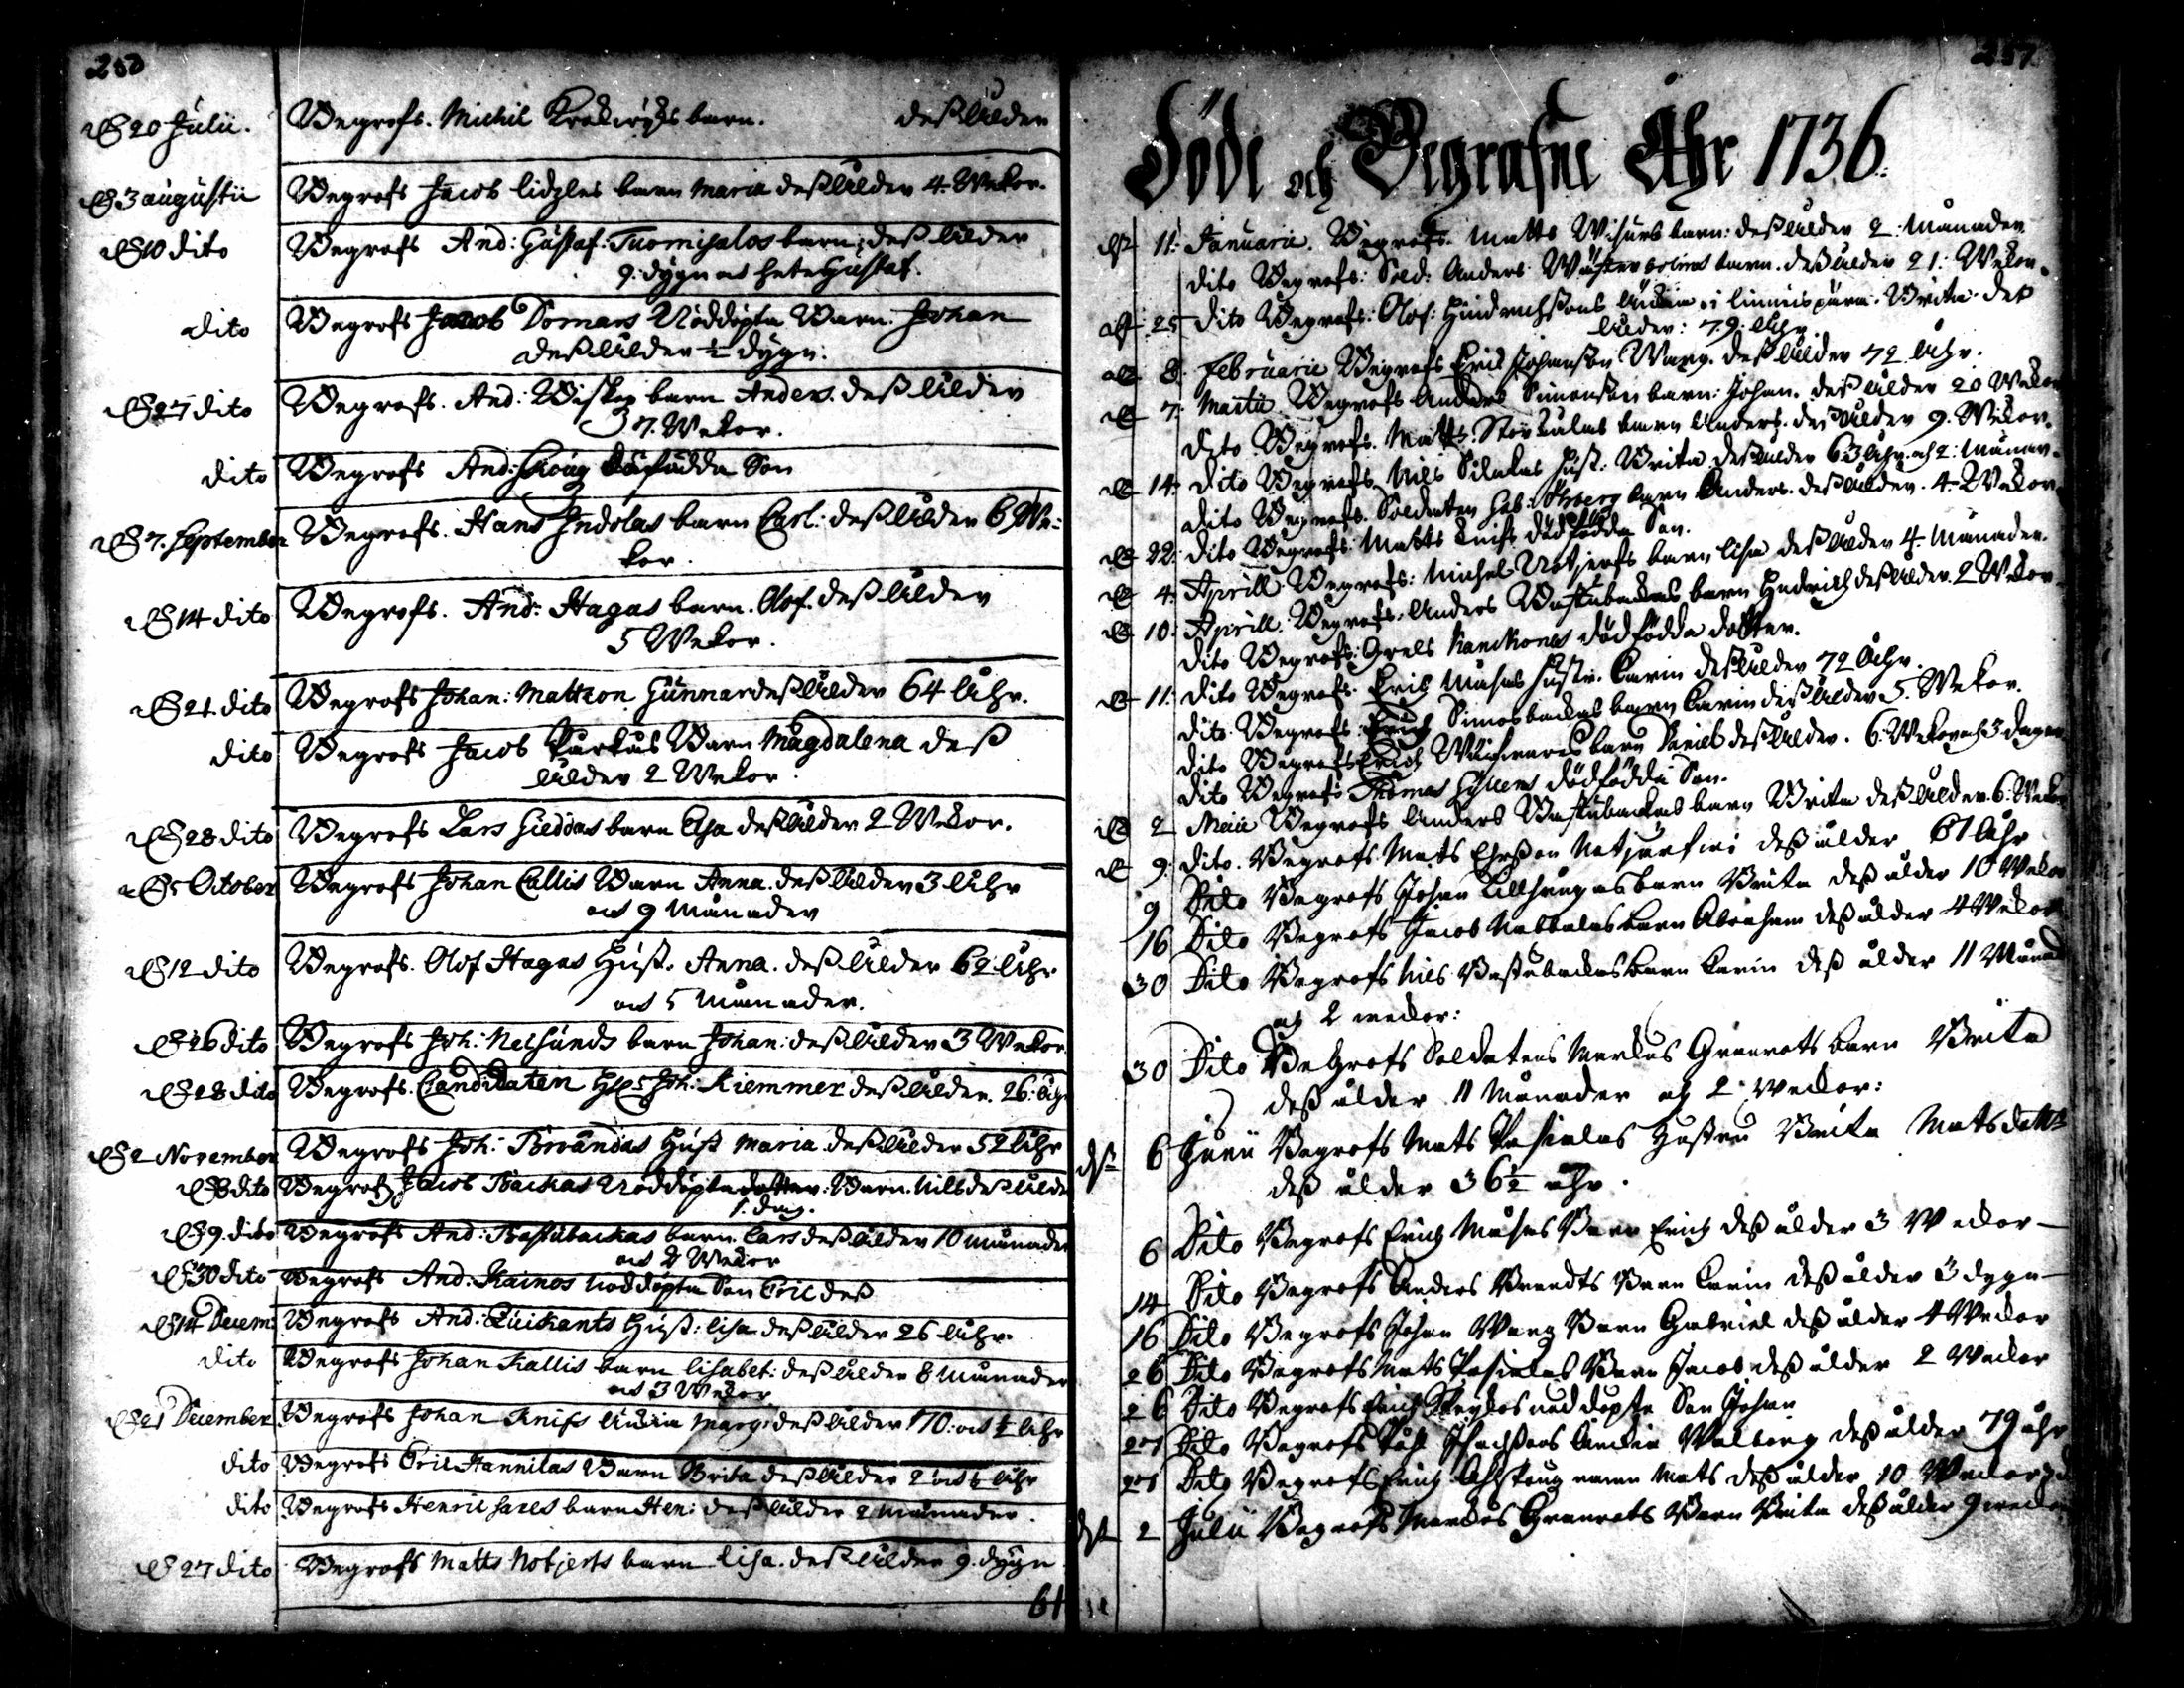 250
D 20 Julii. Begrofs. Michil barn. deß ålder
D 3 augustii Begrofs Jacob lidzles barn Maria deß ålder 4. Wekor.
D 10 dito Begrofs And: Gustaf: Tuomisalos barn; deß ålder
9. dygn at hete Gustaf.
dito Begrofs Jacob Domars Nöddöpta Barn. Johan
deß ålder ½ dygn:
D 27 dito Begrofs. And: Biskop barn Anders. deß ålder
37. Wekor.
dito Begrofs And: Skoug dödfödda Son
D 7. September Begrofs. Hans Indolas barn Carl: deß ålder 6 We:
kor.
D 14 dito Begrofs. And: Hagas barn. Olof. deß ålder
5 Wekor.
D 21 dito Begrofs Johan: Mattzon Gunnar deß ålder 64 åhr.
dito Begrofs Jacob Purkus Barn Magdalena deß
ålder 2 Wekor.
D 28 dito Begrofs Lars Gieddas barn Elsa deß ålder 2 Wekor.
D 5 October Begrofs Johan Callis Barn Anna. deß ålder 3 åhr
och 9 månader
D 12 dito Begrofs. Olof Hagas Hust. Anna. deß ålder 62 åhr
och 5 månader.
D 26 dito Begrofs Joh: Nessunds barn Johan: deß ålder 3 Wekor.
D 28 dito Begrofs. Candidaten Joh: Kiemmer deß ålder. 26. åhr
D 2 November Begrofs Joh: Broändas Hust Maria. deß ålder 52 åhr
dito Begrofs Jacob Backas Nöddöpta Barn. Nils deß ålder
1. dag.
D 9. dito Begrofs And: Bastubackas barn. Lars deß ålder 10 månader
och 2 Wekor
D 30 dito Begrofs And: Kainos nöddöpta Son Eric deß
D 14 Decem: Begrofs And: Quickants Hust: Lisa deß ålder 26 åhr.
dito Begrofs Johan Kallis barn Lisabet: deß ålder 8 månader
och 3 Wekor
D 21 December Begrofs Johan Knifs Änkia Marg: deß ålder 70: och ½ åhr
dito Begrofs Eric Hannilas Barn Brita deß ålder 2 och ½ åhr
dito Begrofs Henric Sares barn Hen: deß ålder 2 månader.
D 27 dito Begrofs Matts Notjerfs barn Lisa. deß ålder 9. dygn
61
257
Döde och Begrafne Åhr 1736.
11: Januarii. Begrofs. Matts Wisurs barn: deß ålder 2: månader
dito Begrofs: Sold: Anders barn. deß ålder 21: Wekor.
25 dito Begrofs: Olof: Hindrichssons Änkia i Linnusperä. Brita. deß
ålder: 79: åhr.
8. Februarii Begrofs Eric Johansson Warg. deß ålder 72 åhr.
7. Martii Begrofs Anders Simonssons barn: Johan. deß ålder 20 Wekor
dito Begrofs. Matts barn Anders. deß ålder 9. Wekor.
14. dito Begrofs Nils Hust: Brita deß ålder 63 åhr och 2: månad.
dito Begrofs. Soldaten barn Anders. deß ålder. 4. Wekor.
22. dito Begrofs: Matts Knifs dödfödda Son.
4. Aprill Begrofs: Michel Notjerfs barn Lisa deß ålder 4. månader.
10. Aprill. Begrofs. Anders Bastubackas barn Hindrich deß ålder. 2 Wekor.
dito Begrofs: Grels Kanckonas dödfödda dotter.
11. dito Begrofs. Erich Måsas Hustr. Carin deß ålder 72 åhr.
dito Begrofs. Erich Simosbackas barn Carin deß ålder 5. Wekor.
dito Begrofs Erich barn Daniel deß ålder. 6. Wekor och 3 dagar
dito Begrofs Thomas dödfödda Son.
2 Maii Begrofs Anders Bastubackas barn Brita deß ålder 6. Wekor
9. dito. Begrofs Mats Ehrsson Notjerfwi deß ålder 61 åhr
9 Dito Begrofs Johan barn Brita deß ålder 10 Wekor
16 Dito Begrofs Jacob Nabbalas barn Abraham deß ålder 4 Wekor
30 Dito Begrofs Nils Bastubackas barn Carin deß ålder 11 Månad
och 2 weckor:
30 Dito Begrofs Soldatens Markus Granrots barn Brita
deß ålder 11 Månader och 2 weckor:
6 Junii Begrofs Mats Pasialas Hustru Brita Matsdotter
deß ålder 36½ åhr.
6 Dito Begrofs Erich Måsas Barn Erich deß ålder 3 Weckor
14 Dito Begrofs Anders Brandts Barn Carin deß ålder 3 dygn
16 Dito Begrofs Johan Warg Barn Gabriel deß ålder 4 Weckor
26 Dito Begrofs Mats Pasialas Barn Jacob deß ålder 2 Weckor
26 Dito Begrofs Erich nöddöpta Son Johan
27 Dito Begrofs Påhl Änkia Walborg deß ålder 79 åhr
27 Dito Begrofs Erich barn Mats deß ålder 10 Weckor
2 Julii Begrofs Markus Granrots Barn Brita deß ålder 9 weckor